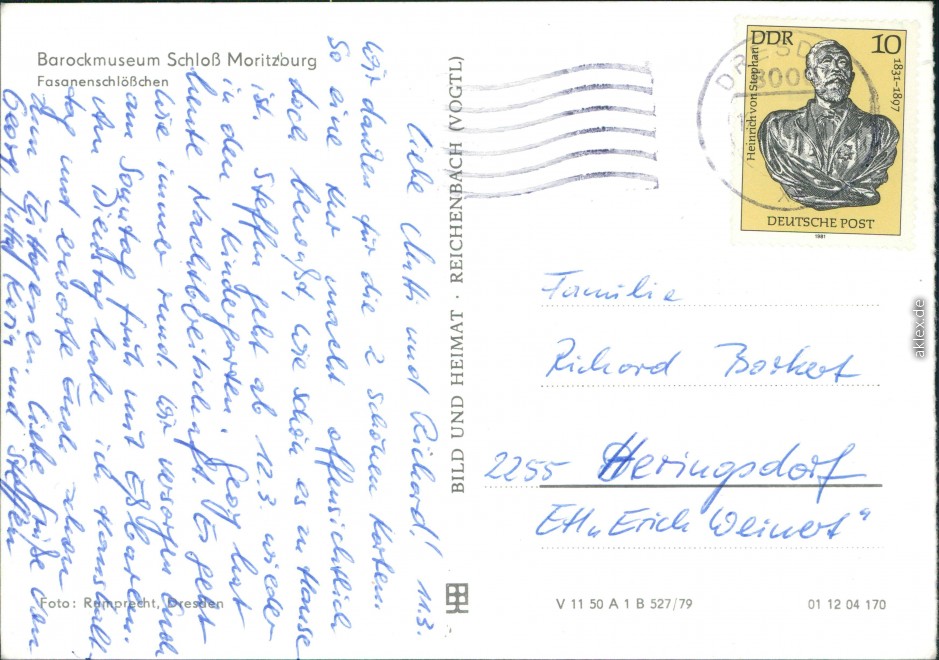 Barockmuseum Schloß Moritzburg
Fasanenschlößchen
Liebe Mutti und Richard! 11.3.
Wir danken für die 2 schönen Karten.
So eine Kur macht offensichtlich
doch bewußt, wie schön es zu Hause
ist. Steffen geht ab 12.3. wieder
in den Kindergarten. Georg hat
heute Nachtbereitschaft. Es geht
wie immer rund. Wir versorgen Euch
am Sonntag früh mit Eßbarem.
Am Dienstag habe ich Haushalt-
tag und erwarte Euch schon
zum Mittagessen. Liebe Grüße von
Georg, und Steffen
BILD UND HEIMAT · REICHENBACH (VOGTL)
DDR 10
Heinrich von Stephan
1831-1897
DEUTSCHE POST
1981
DRESD
Familie
Richard Borkert
2255 Heringsdorf
"Erich Weinert"
Foto: Rumprecht, Dresden
V 11 50 A 1 B 527/79
01 12 04 170
aklex.de